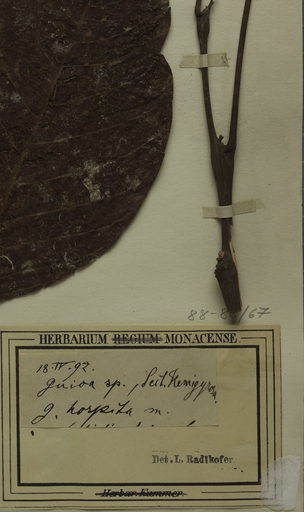 88-89/67
HERBARIUM REGIUM MONACENSE
18.IV.92.
Guioa sp., Sect. Hemigyrosa
G. hospita m.
Det. L. Radlkofer
Herbar Kummer